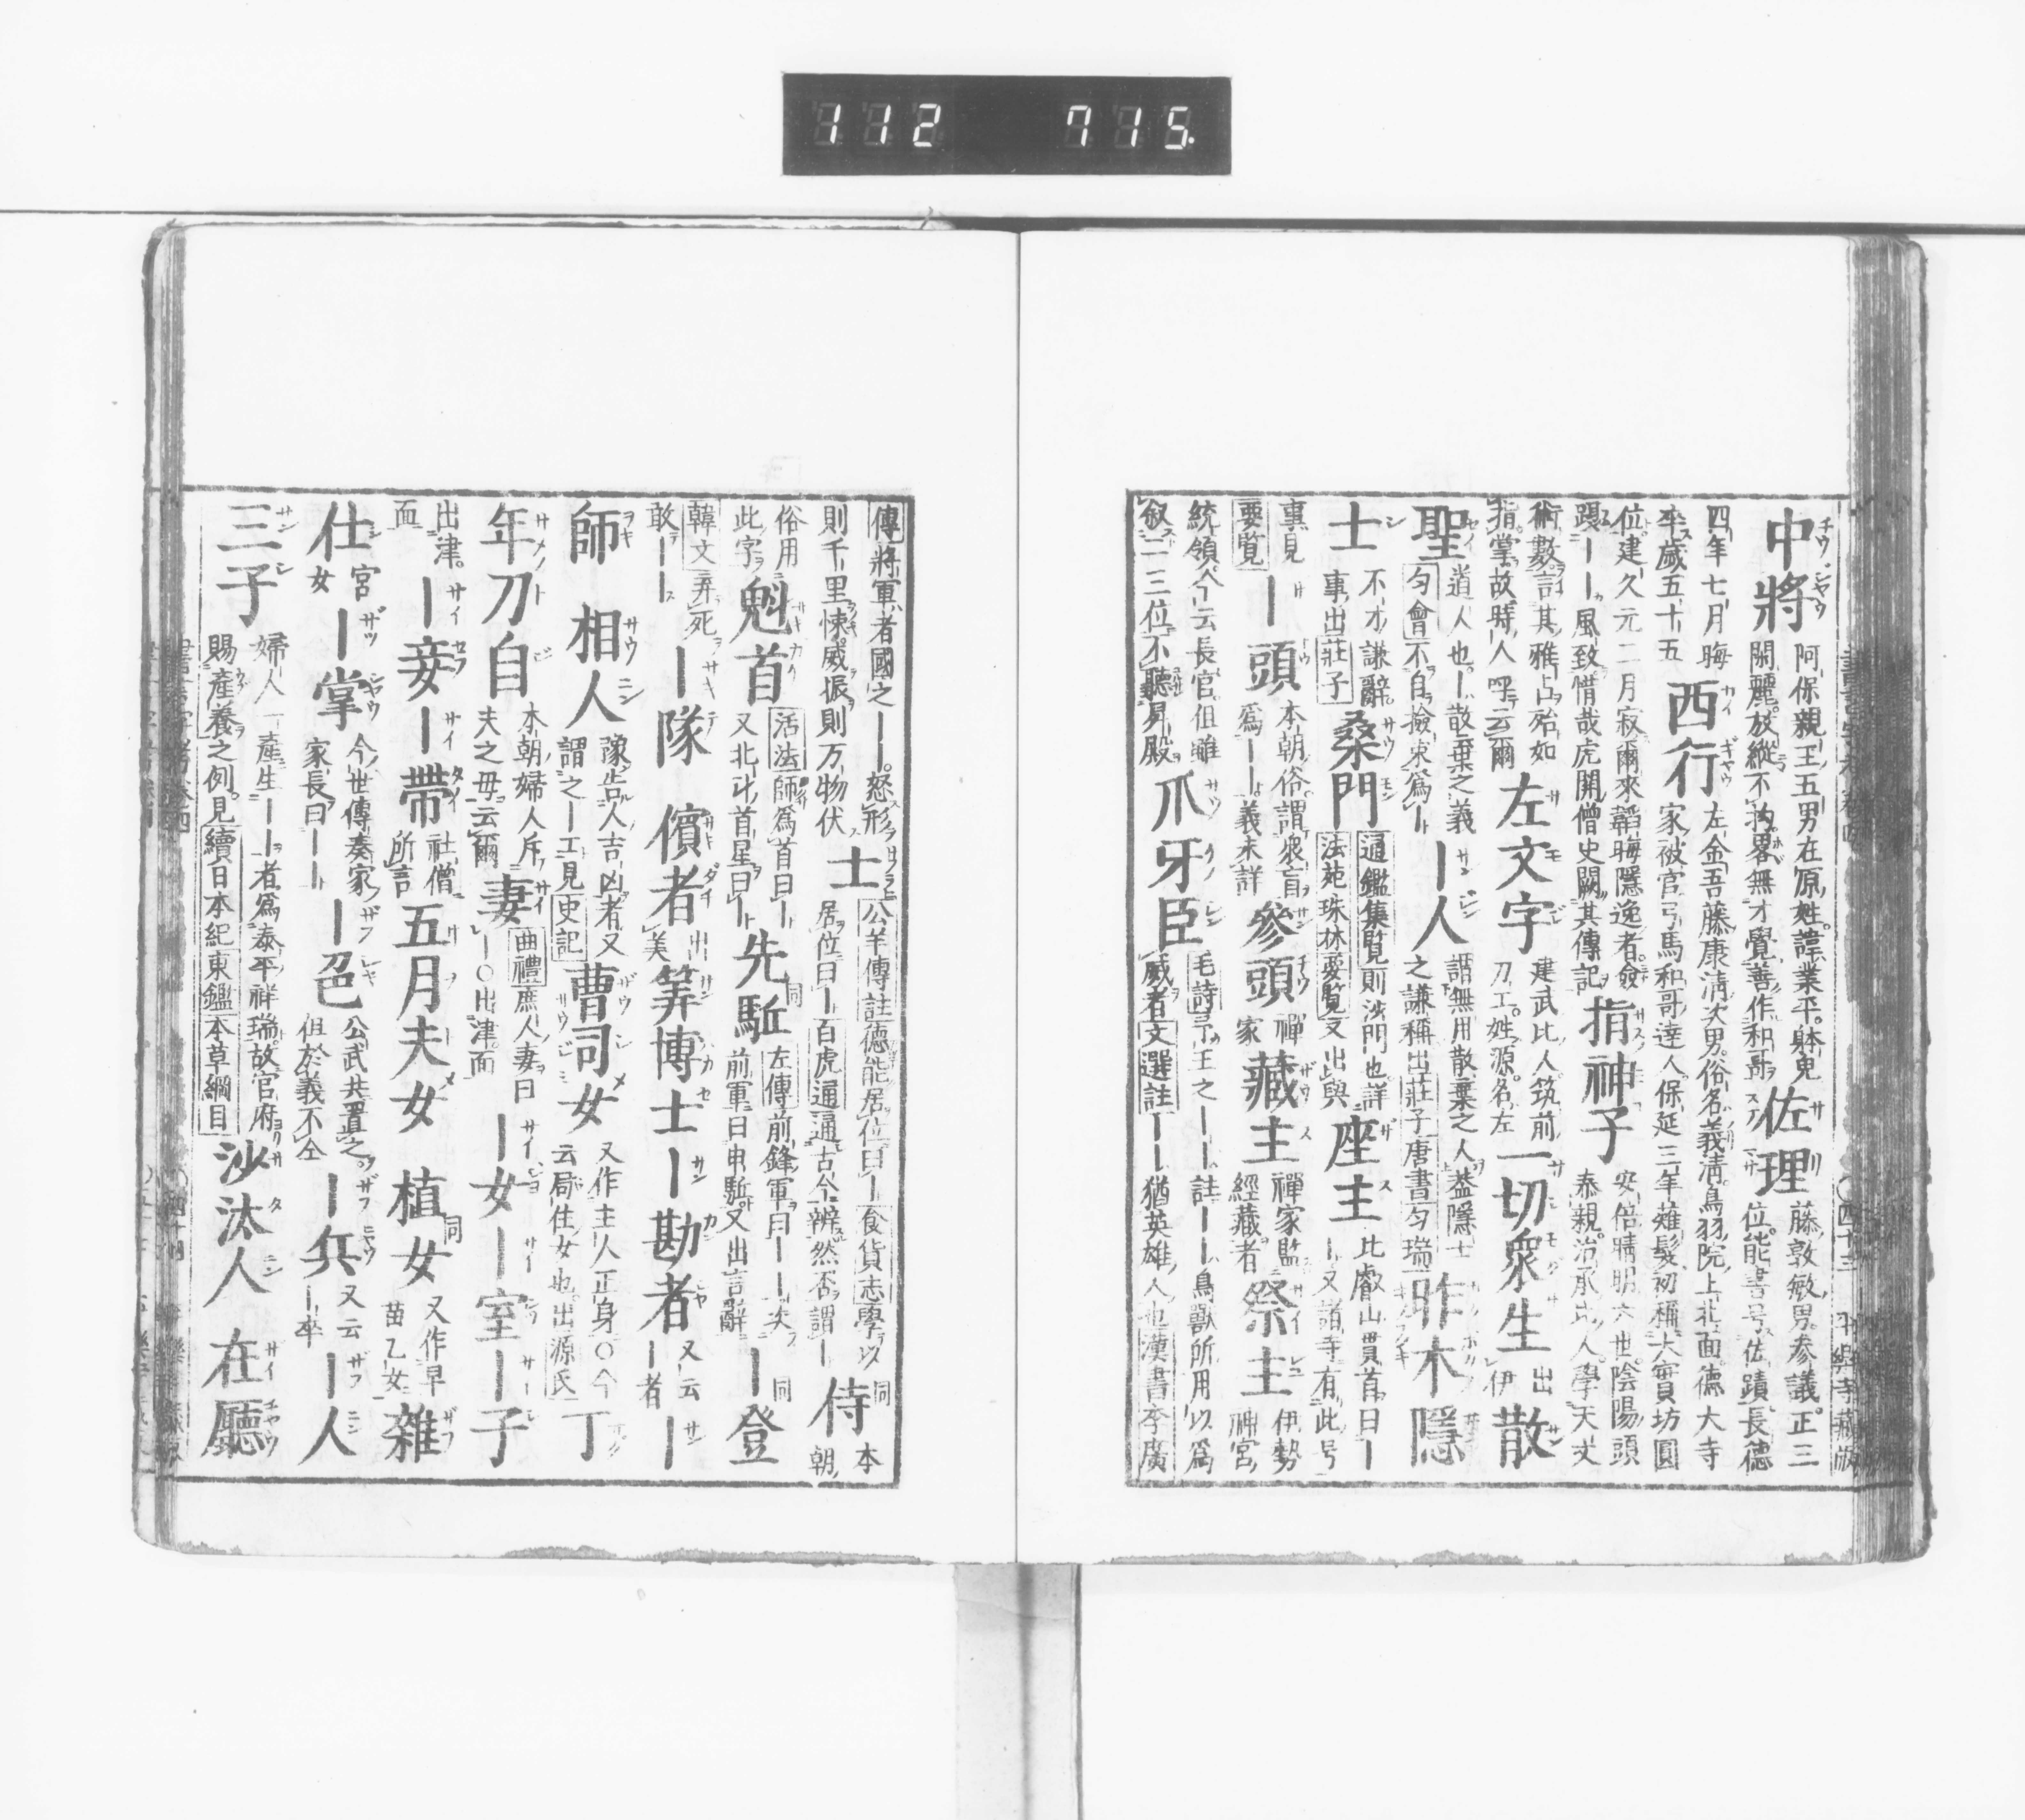 112 715
中將 阿保親王五男在原姓諱業平躰皃
閑麗放縱不拘畧無才覺善作和哥
佐理 藤敦敏男參議正三
位能書号佐蹟長德
四年七月晦
卒歲五十五
西行 左金吾藤康淸次男俗名義淸鳥羽院上北面德大寺
家被官弓馬和哥達人保延三年薙髮初稱大寶坊圓
位建久元二月寂爾來韜晦隱逸者
蹑――風致惜哉虎關僧史闕其傳記
指神子 安倍晴明六世陰陽頭
泰親治承比人學天文
術數言其雅占殆如
指掌故時人呼云爾
左文字 建武比人筑前
刀工姓源名左
一切衆生 出
伊
散
聖 道人也―散棄之義
匀會不自撿束爲―
―人 謂無用散棄之人葢隱士
之謙稱出莊子唐書匀瑞
昨木隱
士 不才謙辭
事出莊子
桑門 通鑑集覧則沙門也詳
法苑珠林要覧又出與
座主 比叡山貫首曰―
―又諸寺有此号
裏見
要覧
―頭 本朝俗謂衆盲
爲――義未詳
參頭 禪
家
藏主 禪家監
經藏者
祭主 伊勢
神宮
統領今云長官但雖
叙二三位不聽昇殿
爪牙臣 毛詩予王之――註――鳥獸所用以爲
威者文選註――猶英雄人也漢書李廣
傳將軍者國之――怒形
則千里悚威振則万物伏
士 公羊傳註德能居位曰―食貨志學以
居位曰―百虎通通古今辨然否謂―
侍 同 本
朝
俗用
此字
魁首 活法師爲首曰―
又北斗首星曰―
先駈 同 左傳前鋒軍曰――次
前軍曰申駈又出言辭
―登 同
韓文弄死
敢――
―隊 儐者 出
美
筭博士―勘者 又云
―者
―
師 相人 豫告人吉凶者又
謂之―工見史記
曹司女 又作主人正身〇今
云局住女也出源氏
丁
年刀自 本朝婦人斥
夫之母云爾
妻 曲禮庶人妻曰
―〇出津面
―女―室―子
出津
面
―妾―帶 社僧
所言
五月夫女 植女 同 又作早
苗乙女
雜
仕 宮
女
―掌 今世傳奏家
家長曰――
―邑 公武共置之
但於義不仝
―兵 又云
―卒
―人
三子 婦人一產生――者爲泰平祥瑞故官府
賜產養之例見續日本紀東鑑本草綱目
沙汰人 在廳